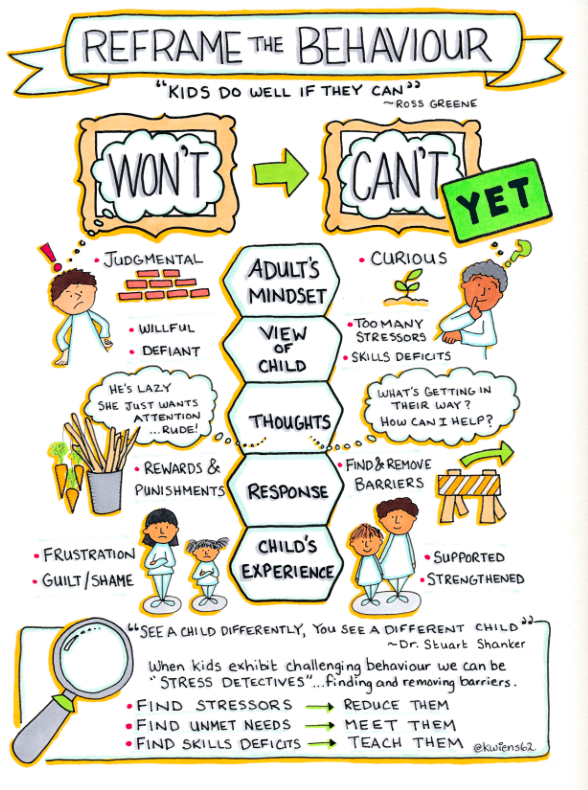 REFRAME THE BEHAVIOUR
"KIDS DO WELL IF THEY CAN"
~ROSS GREENE
WON'T
CAN'T
YET
ADULT'S
MINDSET
• JUDGMENTAL
• CURIOUS
VIEW
OF
CHILD
• WILLFUL
• DEFIANT
• TOO MANY
STRESSORS
• SKILLS DEFICITS
THOUGHTS
HE'S LAZY
SHE JUST WANTS
ATTENTION
...RUDE!
WHAT'S GETTING IN
THEIR WAY?
HOW CAN I HELP?
RESPONSE
• REWARDS &
PUNISHMENTS
• FIND & REMOVE
BARRIERS
CHILD'S
EXPERIENCE
• FRUSTRATION
• GUILT/SHAME
• SUPPORTED
• STRENGTHENED
"SEE A CHILD DIFFERENTLY, YOU SEE A DIFFERENT CHILD"
~Dr. STUART SHANKER
When kids exhibit challenging behaviour we can be
"STRESS DETECTIVES"...finding and removing barriers.
• FIND STRESSORS → REDUCE THEM
• FIND UNMET NEEDS → MEET THEM
• FIND SKILLS DEFICITS → TEACH THEM
@kwiens62